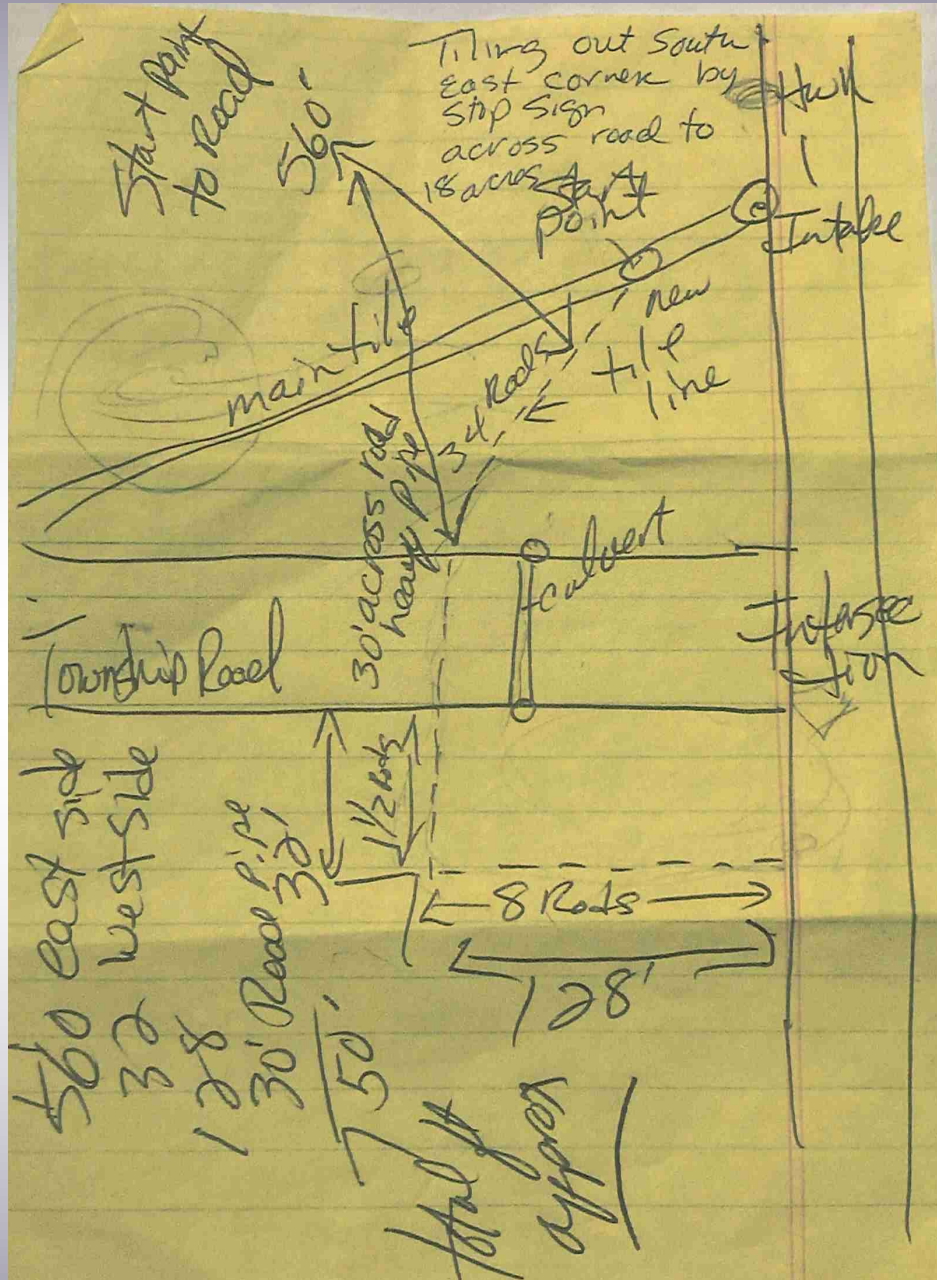 Start point
to Road
560'
Tiling out South
East corner by
Stop Sign
across road to
18 acres
Start
point
Intake
main tile
new
tile
line
34 Rods
30' across road
heavy pipe
culvert
Township Road
Intersec
tion
1 1/2 Rods
32'
8 Rods
128'
560 east side
32 west side
128
30' Road pipe
750'
total ft
approx